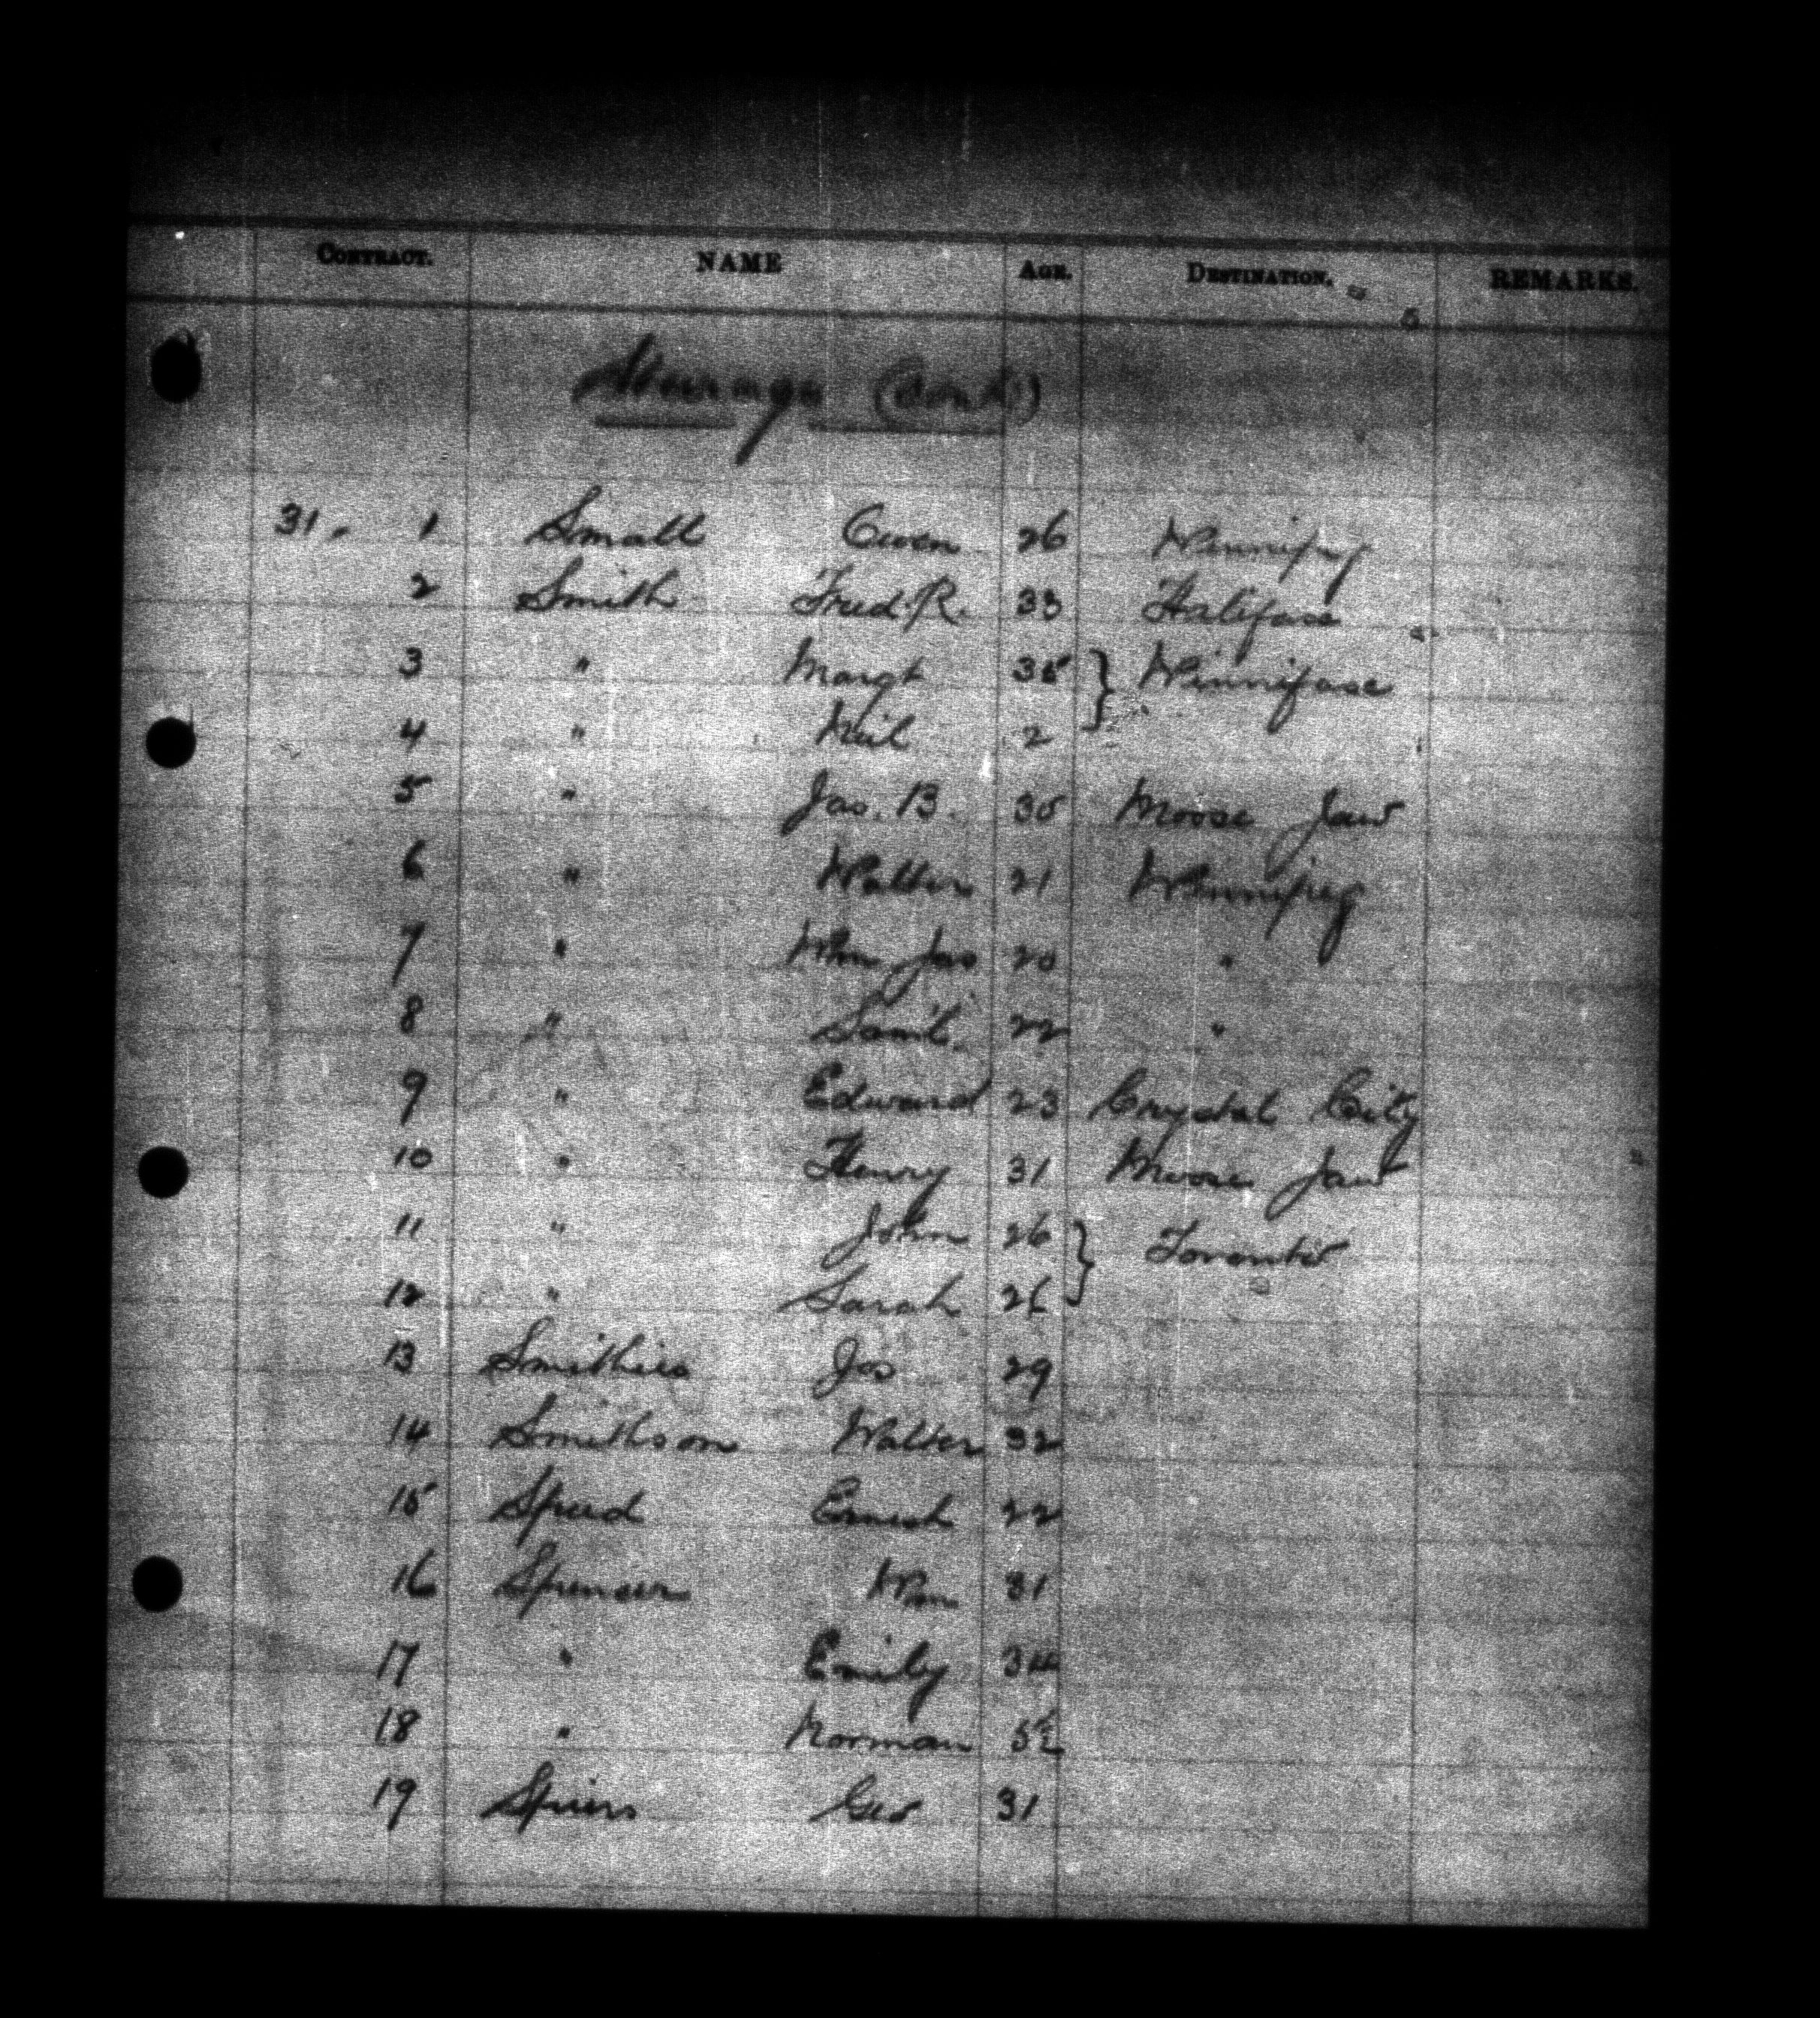 CONTRACT. NAME AGE. DESTINATION. REMARKS.
Steerage (Cont)
31. 1 Small Owen 26 Winnipeg
2 Smith Fred. R. 33 Halifax
3 " Margt 35 } Winnifax
4 " Neil 2
5 " Jas. B. 30 Moose Jaw
6 " Walter 21 Winnipeg
7 " Wm Jas 20 "
8 " Saml. 22 "
9 " Edward 23 Crystal City
10 " Henry 31 Moose Jaw
11 " John 26 } Toronto
12 " Sarah 26
13 Smithies Jos 29
14 Smithson Walter 32
15 Speed Ernest 22
16 Spencer Wm 31
17 " Emily 34
18 " Norman 5½
19 Spiers Geo 31